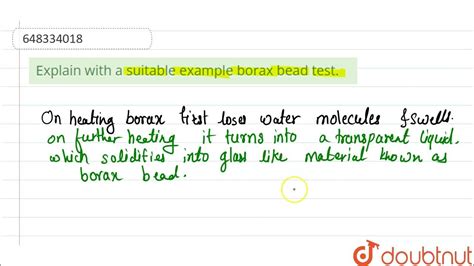 648334018
Explain with a suitable example borax bead test.
On heating borax first loses water molecules & swells.
on further heating it turns into a transparent liquid.
which solidifies into glass like material known as
borax bead.
doubtnut